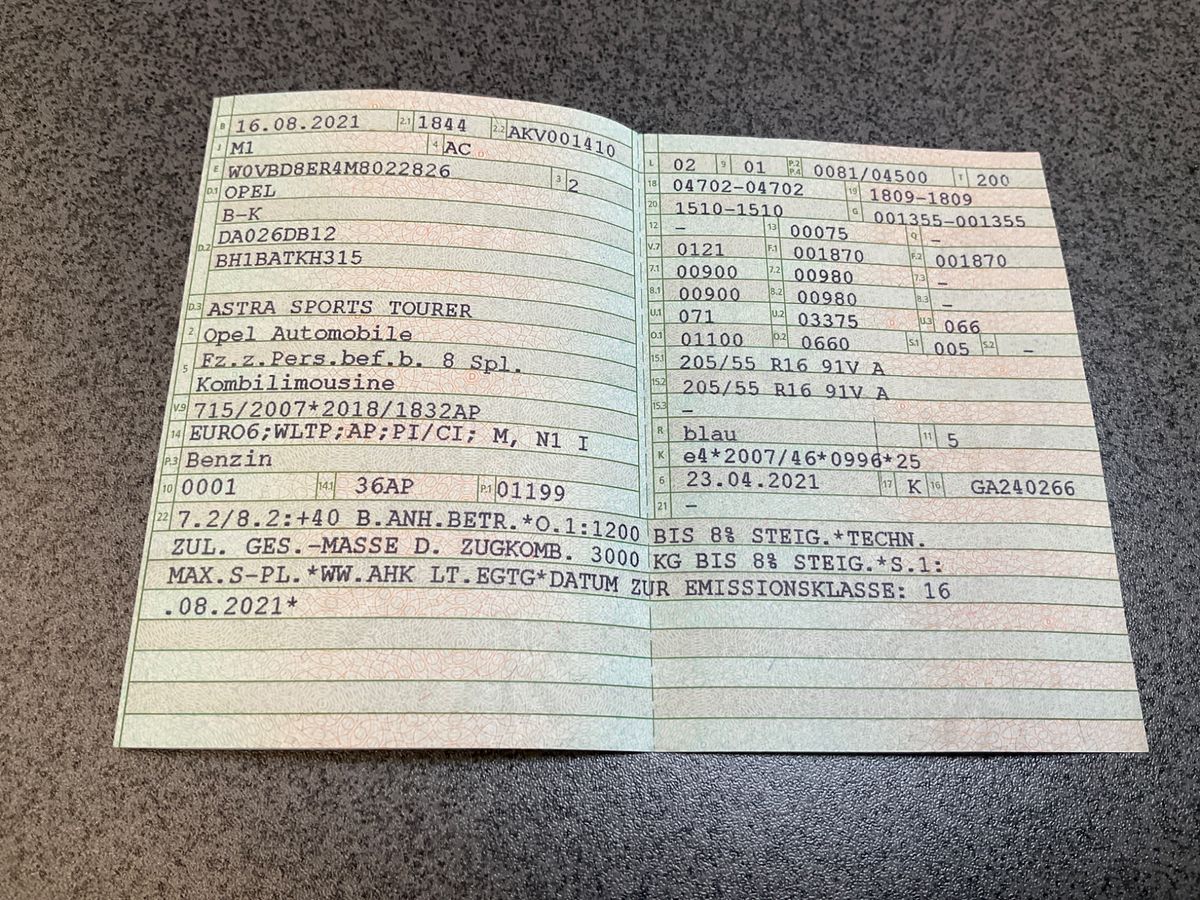 B 16.08.2021 2.1 1844 2.2 AKV001410
J M1 4 AC
E W0VBD8ER4M8022826 3 2
D.1 OPEL
B-K
D.2 DA026DB12
BH1BATKH315
D.3 ASTRA SPORTS TOURER
2 Opel Automobile
5 Fz.z.Pers.bef.b. 8 Spl.
Kombilimousine
V.9 715/2007*2018/1832AP
14 EURO6;WLTP;AP;PI/CI; M, N1 I
P.3 Benzin
10 0001 14.1 36AP P.1 01199
L 02 9 01 P.2 P.4 0081/04500 T 200
18 04702-04702 19 1809-1809
20 1510-1510 G 001355-001355
12 – 13 00075 Q –
V.7 0121 F.1 001870 F.2 001870
7.1 00900 7.2 00980 7.3 –
8.1 00900 8.2 00980 8.3 –
U.1 071 U.2 03375 U.3 066
O.1 01100 O.2 0660 S.1 005 S.2 –
15.1 205/55 R16 91V A
15.2 205/55 R16 91V A
15.3 –
R blau 11 5
K e4*2007/46*0996*25
6 23.04.2021 17 K 16 GA240266
21 –
22 7.2/8.2:+40 B.ANH.BETR.*O.1:1200 BIS 8% STEIG.*TECHN.
ZUL. GES.-MASSE D. ZUGKOMB. 3000 KG BIS 8% STEIG.*S.1:
MAX.S-PL.*WW.AHK LT.EGTG*DATUM ZUR EMISSIONSKLASSE: 16
.08.2021*